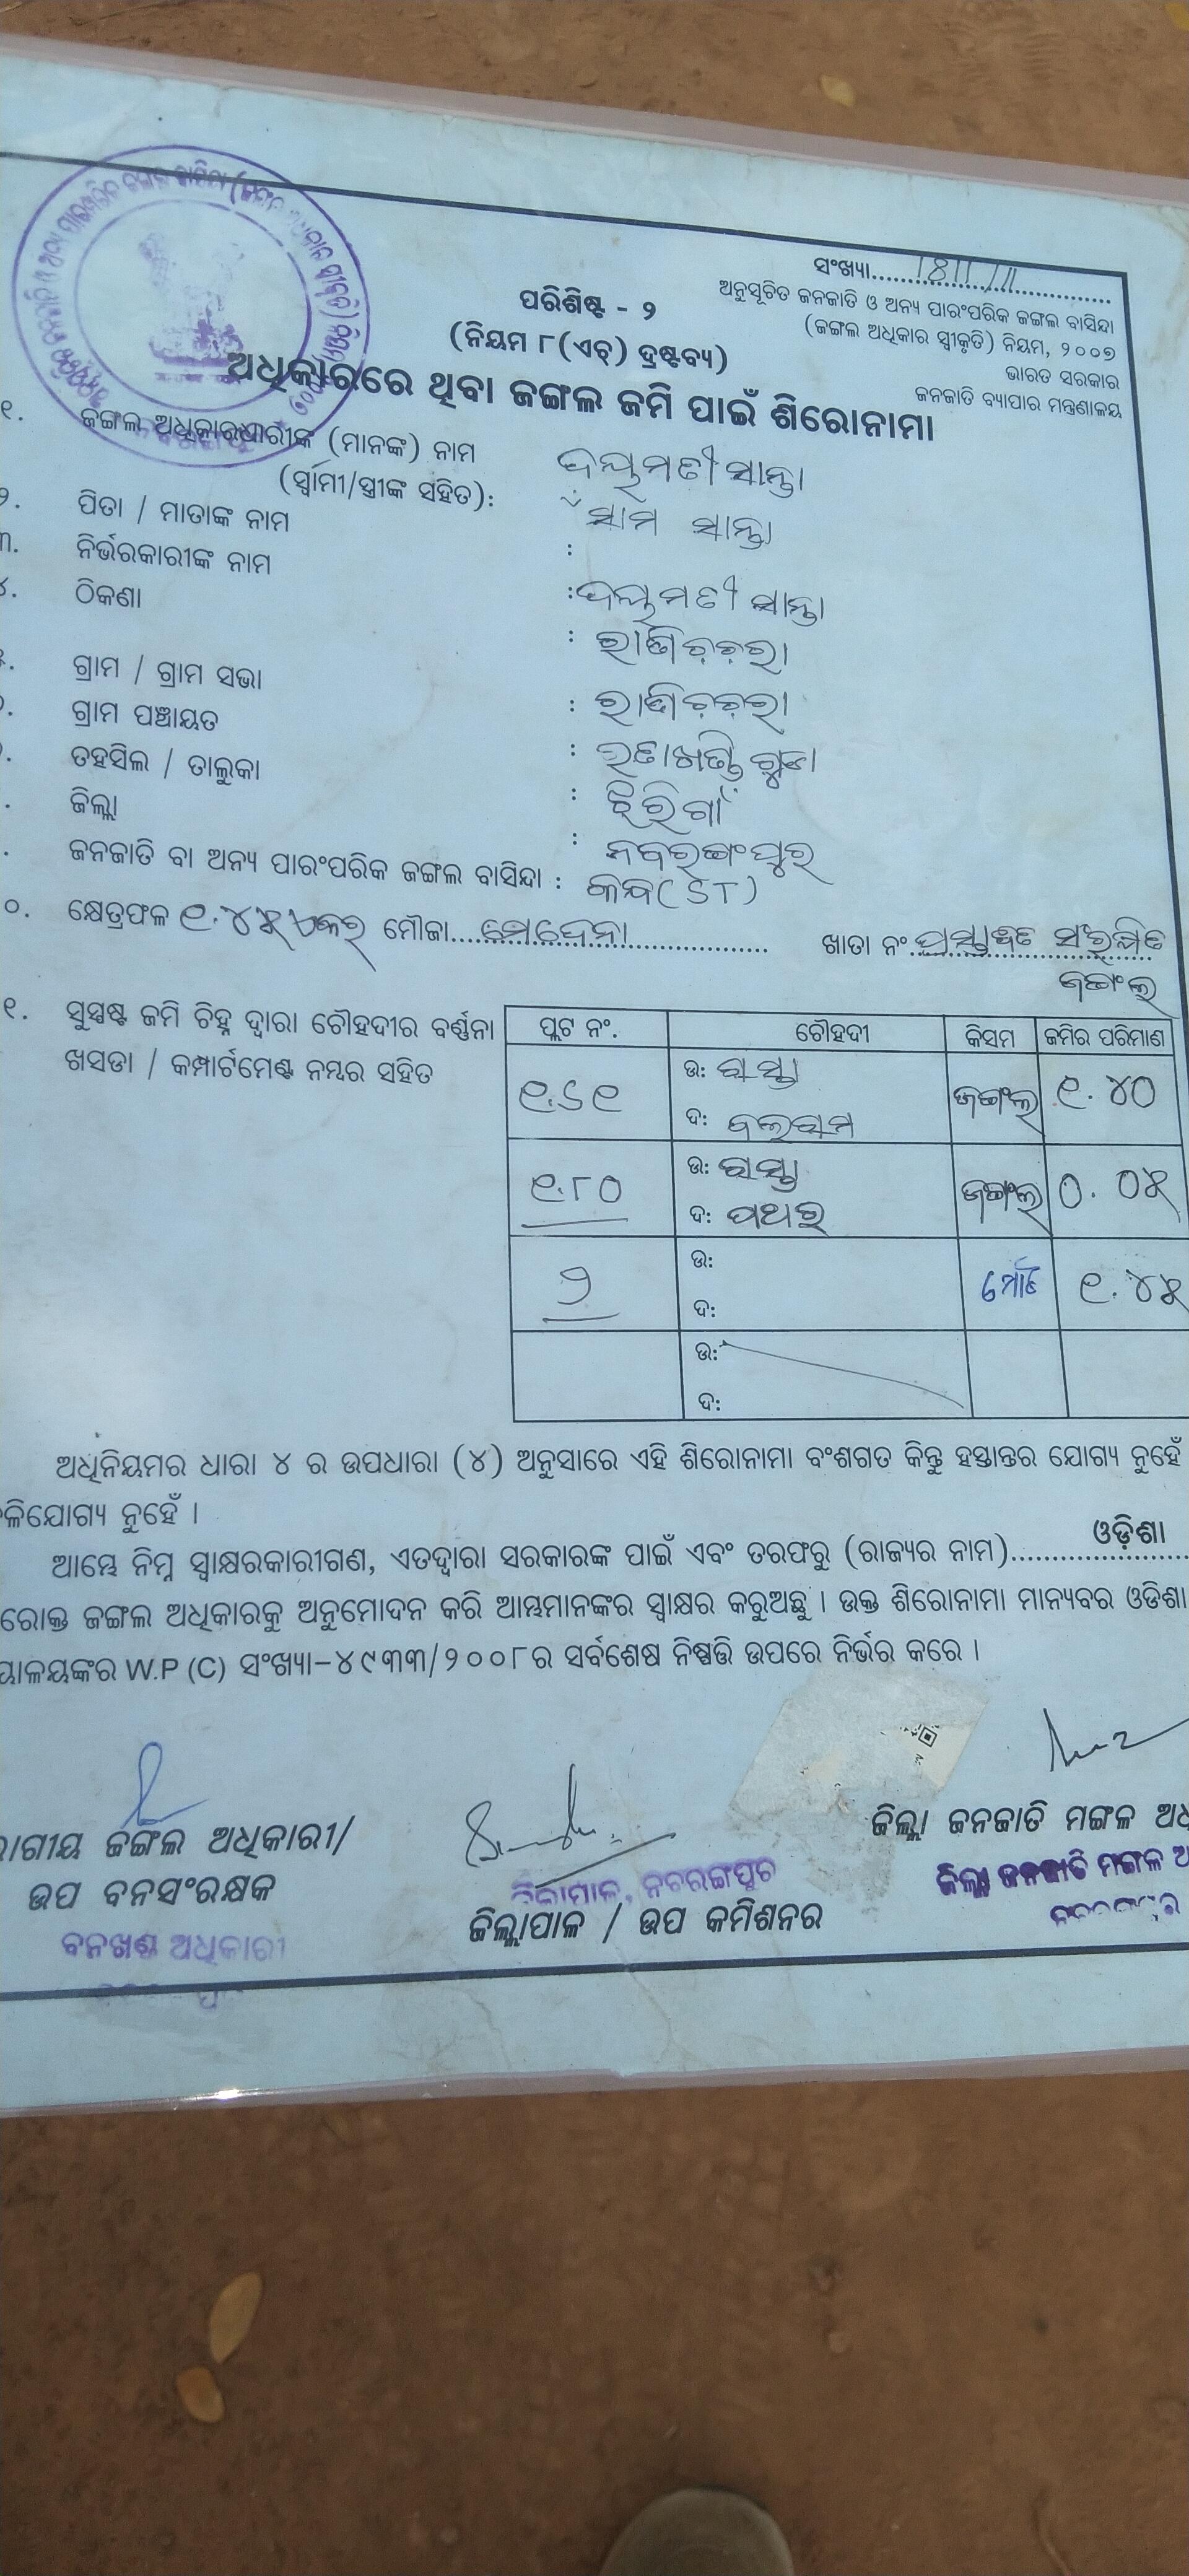 ସଂଖ୍ୟା
ଅନୁସୂଚିତ ଜନଜାତି ଓ ଅନ୍ୟ ପାରଂପରିକ ଜଙ୍ଗଲ ବାସିନ୍ଦା
(ଜଙ୍ଗଲ ଅଧିକାର ସ୍ୱୀକୃତି) ନିୟମ, ୨୦୦୭
ଭାରତ ସରକାର
ଜନଜାତି ବ୍ୟାପାର ମନ୍ତ୍ରଣାଳୟ
ପରିଶିଷ୍ଟ - ୨
(ନିୟମ ୮(ଏଚ୍) ଦ୍ରଷ୍ଟବ୍ୟ)
ଅଧିକାରରେ ଥିବା ଜଙ୍ଗଲ ଜମି ପାଇଁ ଶିରୋନାମା
୧. ଜଙ୍ଗଲ ଅଧିକାରଧାରୀଙ୍କ (ମାନଙ୍କ) ନାମ
(ସ୍ୱାମୀ/ସ୍ତ୍ରୀଙ୍କ ସହିତ): ସାନ୍ତା
୨. ପିତା / ମାତାଙ୍କ ନାମ ସାମ ସାନ୍ତା
୩. ନିର୍ଭରକାରୀଙ୍କ ନାମ :
୪. ଠିକଣା : ସାନ୍ତା
ଗ୍ରାମ / ଗ୍ରାମ ସଭା :
ଗ୍ରାମ ପଞ୍ଚାୟତ :
ତହସିଲ / ତାଲୁକା : ଝରିଗାଁ
ଜିଲ୍ଲା : ନବରଙ୍ଗପୁର
ଜନଜାତି ବା ଅନ୍ୟ ପାରଂପରିକ ଜଙ୍ଗଲ ବାସିନ୍ଦା : କନ୍ଧ (ST)
୦. କ୍ଷେତ୍ରଫଳ ୧.୪୫ ଏକର ମୌଜା ମେଦେନା ଖାତା ନଂ ପ୍ରସ୍ତାବିତ ସଂରକ୍ଷିତ
ଜଙ୍ଗଲ
୧. ସୁସ୍ପଷ୍ଟ ଜମି ଚିହ୍ନ ଦ୍ୱାରା ଚୌହଦୀର ବର୍ଣ୍ଣନା
ଖସଡା / କମ୍ପାର୍ଟମେଣ୍ଟ ନମ୍ବର ସହିତ
ପ୍ଲଟ ନଂ. ଚୌହଦୀ କିସମ ଜମିର ପରିମାଣ
ଉ: ରାସ୍ତା
ଦ: ବଳରାମ ଜଙ୍ଗଲ ୧.୪୦
ଉ: ରାସ୍ତା
୧.୮୦ ଦ: ପଥର ଜଙ୍ଗଲ ୦.୦୫
ଉ:
୨ ମୋଟ ୧.୪୫
ଦ:
ଉ:
ଦ:
ଅଧିନିୟମର ଧାରା ୪ ର ଉପଧାରା (୪) ଅନୁସାରେ ଏହି ଶିରୋନାମା ବଂଶଗତ କିନ୍ତୁ ହସ୍ତାନ୍ତର ଯୋଗ୍ୟ ନୁହେଁ
ଳିଯୋଗ୍ୟ ନୁହେଁ ।
ଆମ୍ଭେ ନିମ୍ନ ସ୍ୱାକ୍ଷରକାରୀଗଣ, ଏତଦ୍ୱାରା ସରକାରଙ୍କ ପାଇଁ ଏବଂ ତରଫରୁ (ରାଜ୍ୟର ନାମ) ଓଡ଼ିଶା
ରୋକ୍ତ ଜଙ୍ଗଲ ଅଧିକାରକୁ ଅନୁମୋଦନ କରି ଆମ୍ଭମାନଙ୍କର ସ୍ୱାକ୍ଷର କରୁଅଛୁ । ଉକ୍ତ ଶିରୋନାମା ମାନ୍ୟବର ଓଡିଶା
ୟାଳୟଙ୍କର W.P (C) ସଂଖ୍ୟା-୪୯୩୩/୨୦୦୮ର ସର୍ବଶେଷ ନିଷ୍ପତ୍ତି ଉପରେ ନିର୍ଭର କରେ ।
ଭାଗୀୟ ଜଙ୍ଗଲ ଅଧିକାରୀ/
ଉପ ବନସଂରକ୍ଷକ
ବନଖଣ୍ଡ ଅଧିକାରୀ
ଜିଲ୍ଲାପାଳ, ନବରଙ୍ଗପୁର
ଜିଲ୍ଲାପାଳ / ଉପ କମିଶନର
ଜିଲ୍ଲା ଜନଜାତି ମଙ୍ଗଳ ଅଧ
ଜିଲ୍ଲା ଜନଜାତି ମଙ୍ଗଳ ଅ